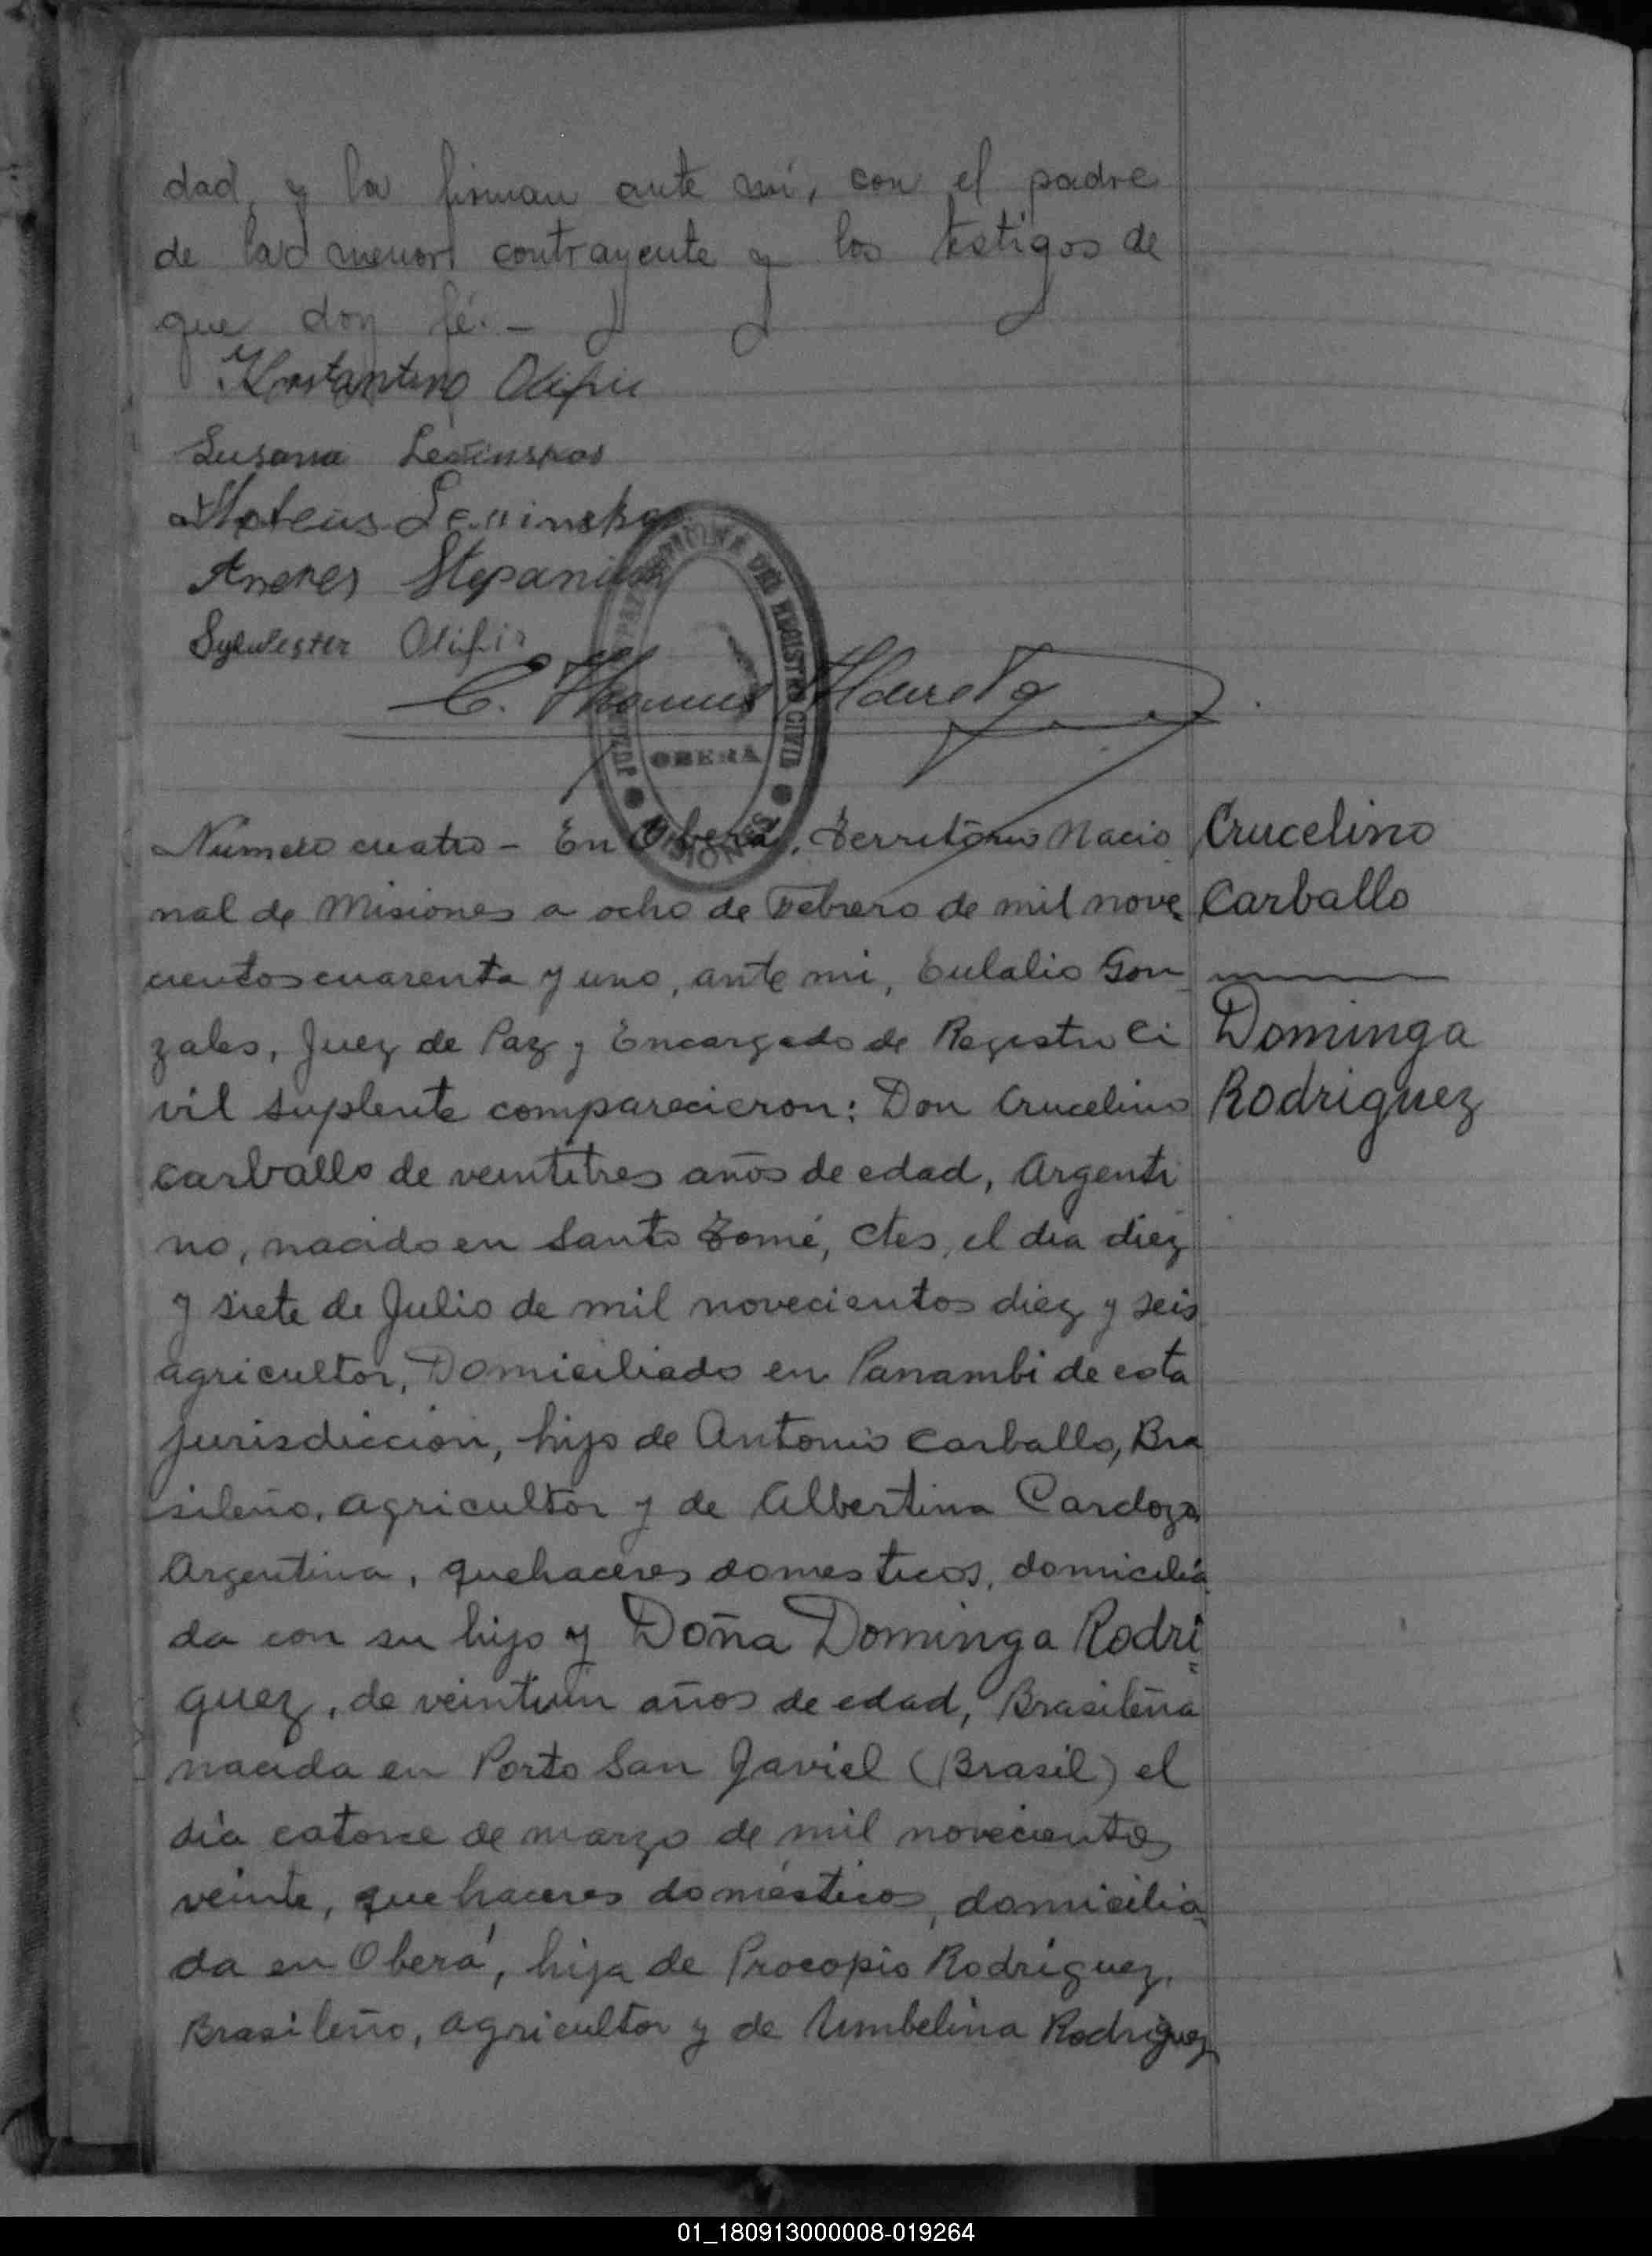 dad, y la firman ante mi, con el padre
de la menor contrayente y los testigos de
que doy fé. -
Kostantino Olifir
Susana
Andres
Sylwester Olifir
C. Thomas
OFICINA DEL REGISTRO CIVIL
OBERÁ
MISIONES
Número cuatro - En Oberá, Territorio Nacio
nal de Misiones a ocho de Febrero de mil nove
cientos cuarenta y uno, ante mi, Eulalio Gon
zales, Juez de Paz y Encargado de Registro Ci
vil suplente comparecieron: Don Crucelino
Carballo de veintitres años de edad, Argenti
no, nacido en Santo Tomé, Ctes, el día diez
y siete de Julio de mil novecientos diez y seis
agricultor, Domiciliado en Panambi de esta
jurisdiccion, hijo de Antonio Carballo, Bra
sileño, agricultor y de Albertina Cardozo
Argentina, quehaceres domesticos, domicilia
da con su hijo y Doña Dominga Rodri
guez, de veintiun años de edad, Brasileña
nacida en Porto San Javiel (Brasil) el
día catorce de marzo de mil novecientos
veinte, quehaceres domésticos, domicilia
da en Oberá, hija de Procopio Rodriguez,
Brasileño, agricultor y de Umbelina Rodriguez
Crucelino
Carballo
Dominga
Rodriguez
01_180913000008-019264